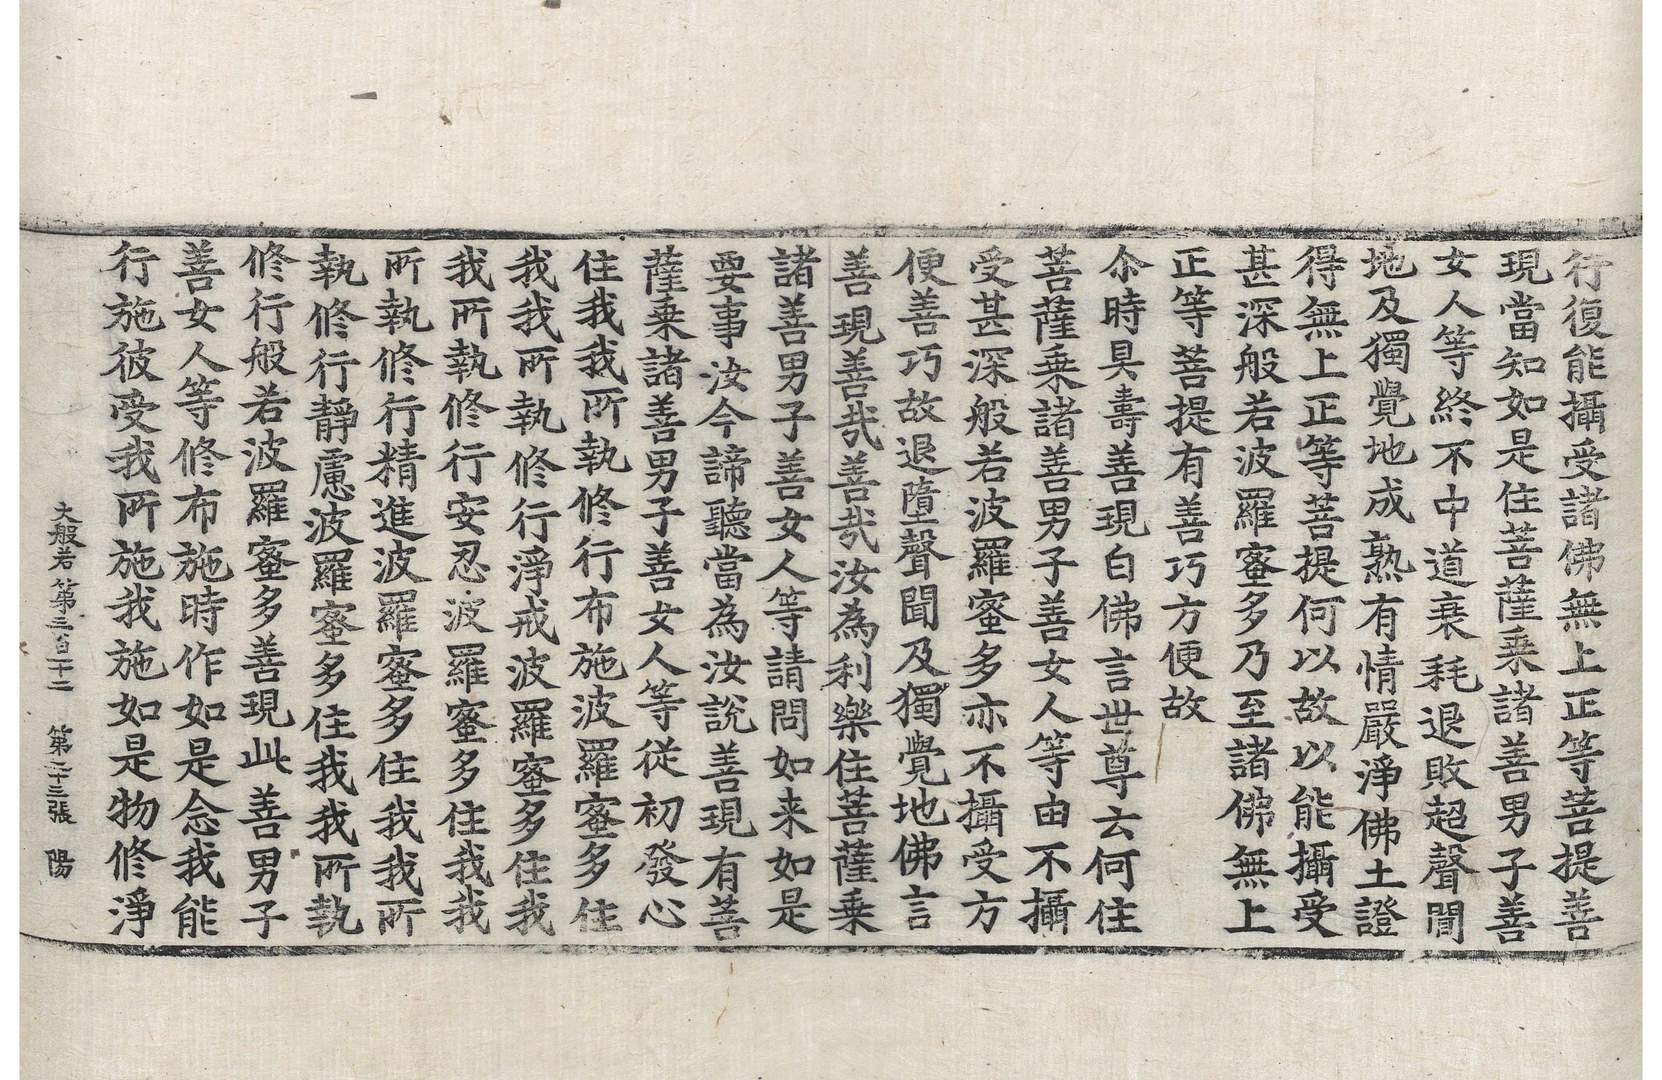 行復能攝受諸佛無上正等菩提善
現當知如是住菩薩乗諸善男子善
女人等終不中道衰耗退敗超聲聞
地及獨覺地成熟有情嚴淨佛土證
得無上正等菩提何以故以能攝受
甚深般若波羅蜜多乃至諸佛無上
正等菩提有善巧方便故
尒時具壽善現白佛言世尊云何住
菩薩乗諸善男子善女人等由不攝
受甚深般若波羅蜜多亦不攝受方
便善巧故退墮聲聞及獨覺地佛言
善現善哉善哉汝為利樂住菩薩乗
諸善男子善女人等請問如来如是
要事汝今諦聽當為汝説善現有菩
薩乗諸善男子善女人等從初發心
住我我所執修行布施波羅蜜多住
我我所執修行淨戒波羅蜜多住我
我所執修行安忍波羅蜜多住我我
所執修行精進波羅蜜多住我我所
執修行靜慮波羅蜜多住我我所執
修行般若波羅蜜多善現此善男子
善女人等修布施時作如是念我能
行施彼受我所施我施如是物修淨
大般若第三百二十二 第二十三張 陽